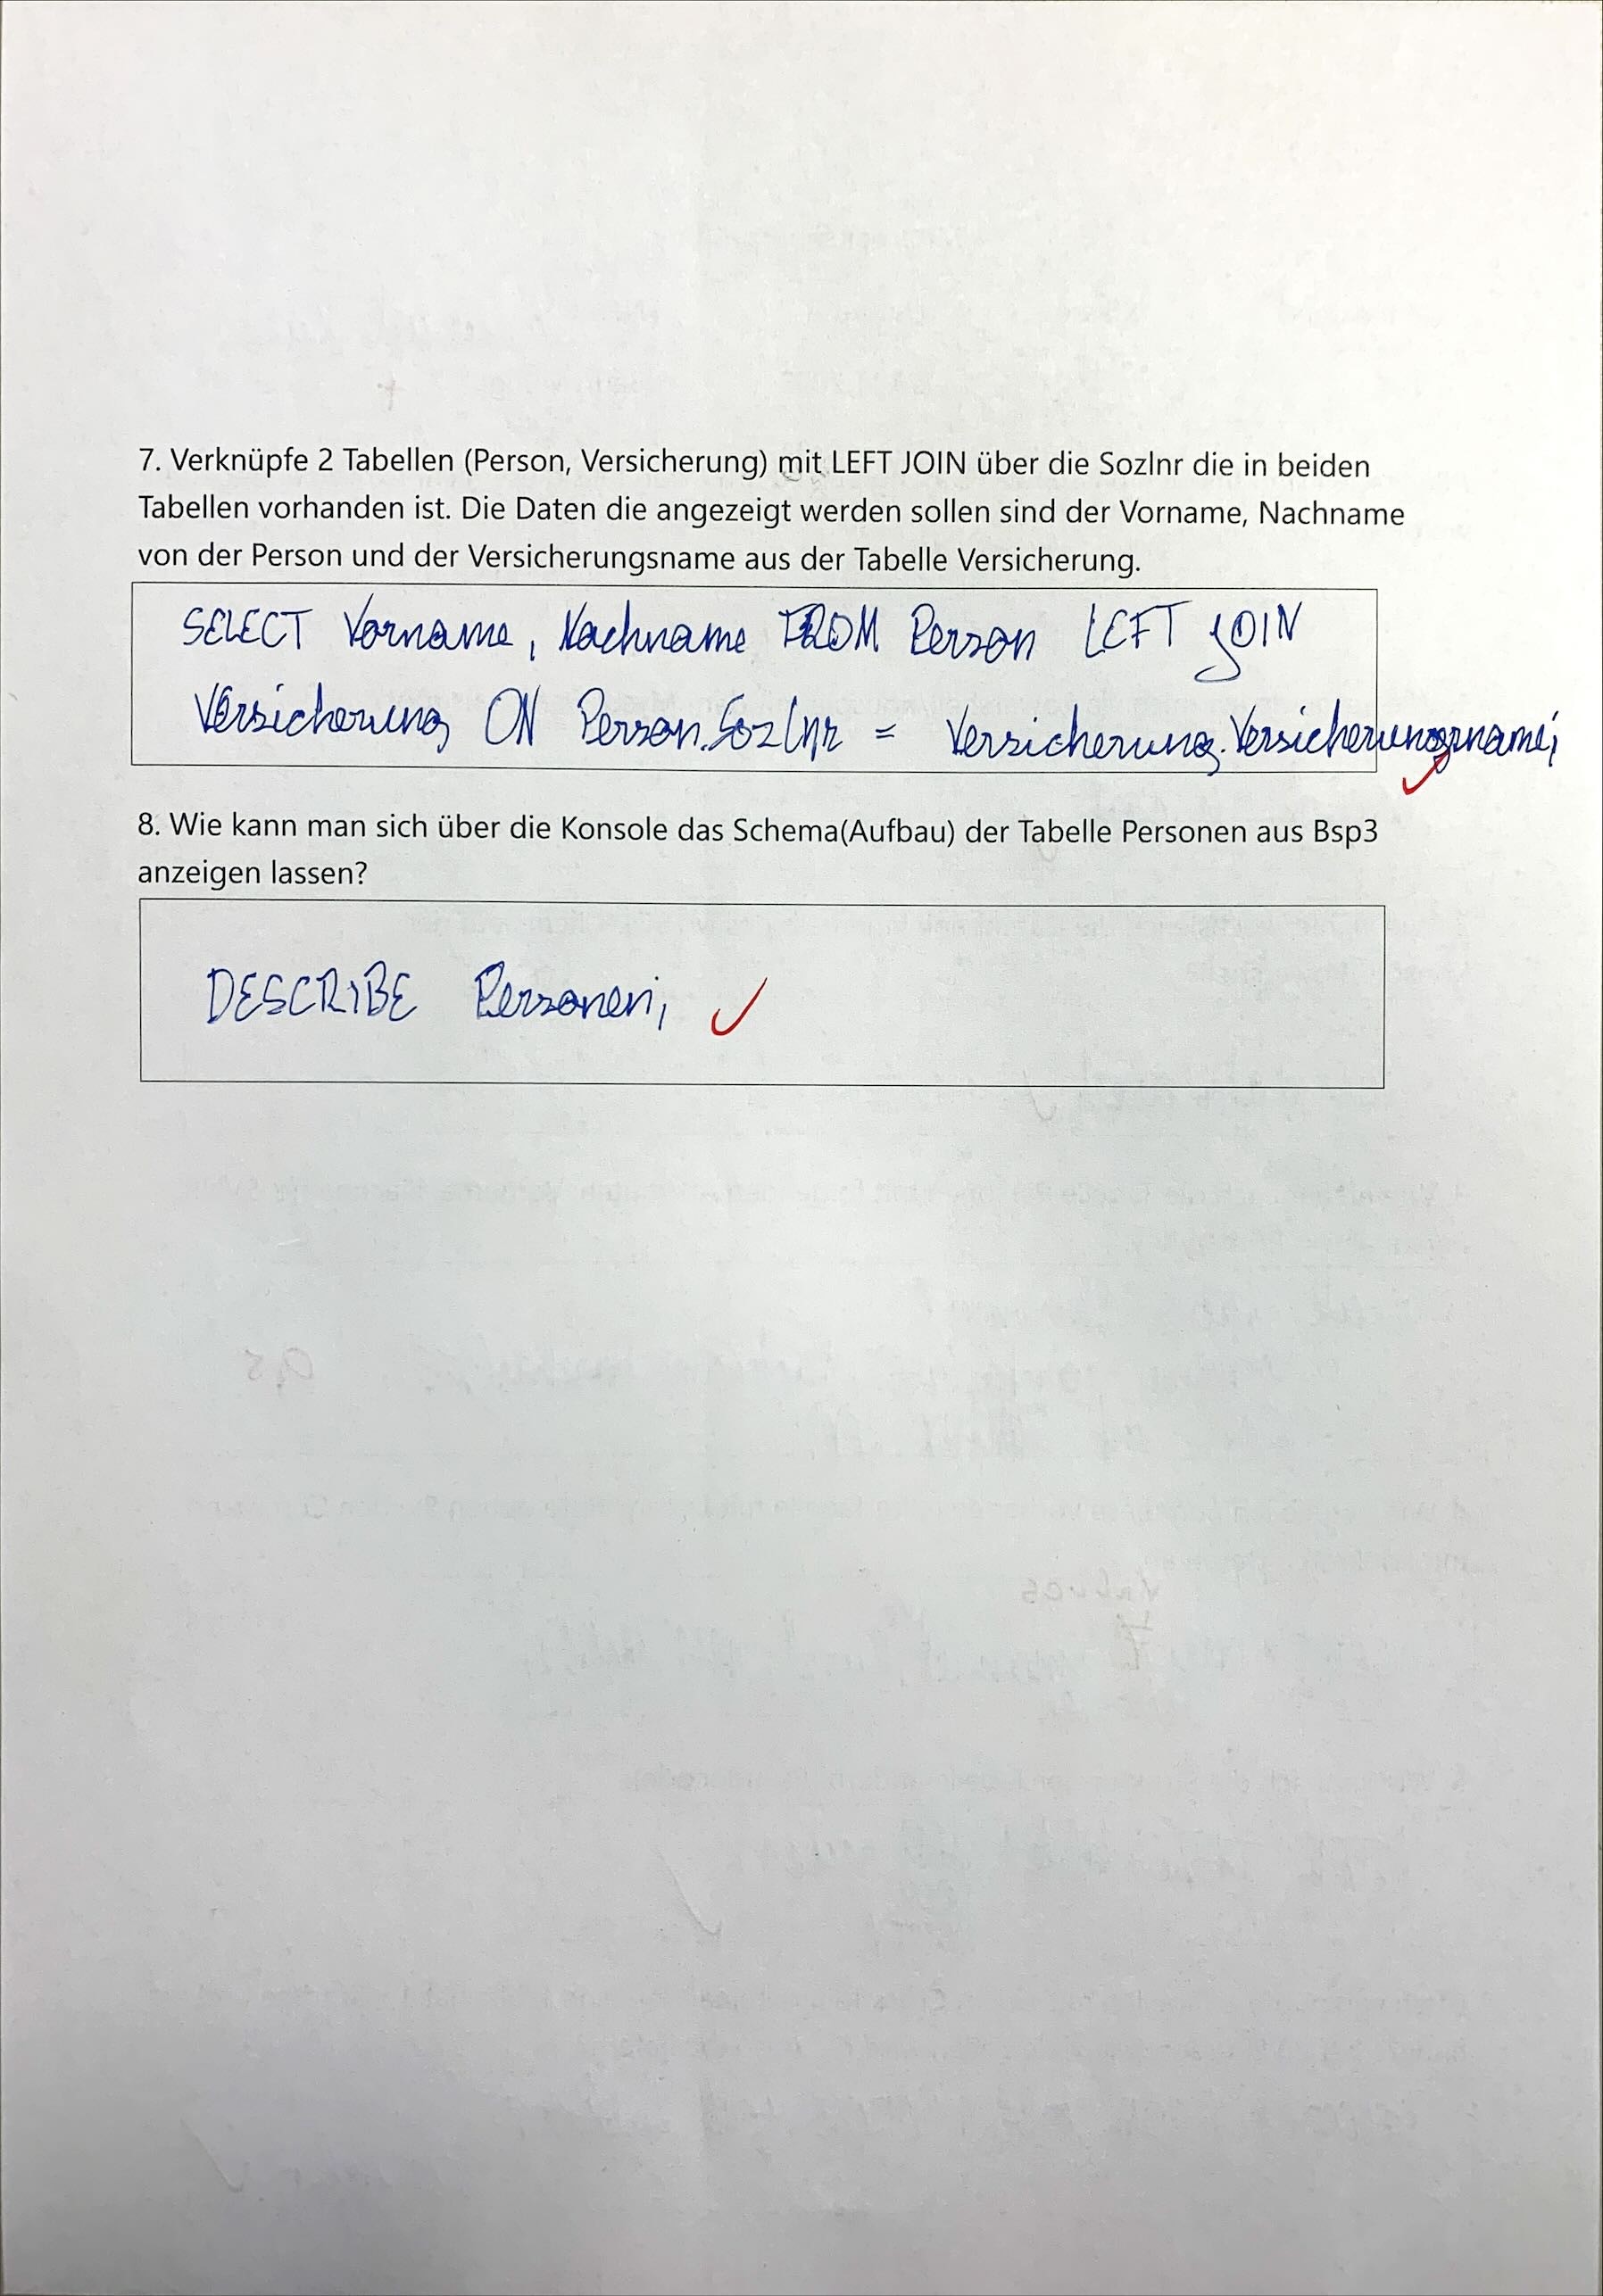 7. Verknüpfe 2 Tabellen (Person, Versicherung) mit LEFT JOIN über die Sozlnr die in beiden
Tabellen vorhanden ist. Die Daten die angezeigt werden sollen sind der Vorname, Nachname
von der Person und der Versicherungsname aus der Tabelle Versicherung.
SELECT Vorname, Nachname FROM Person LEFT JOIN
Versicherung ON Person.Sozlnr = Versicherung.Versicherungsname;
8. Wie kann man sich über die Konsole das Schema(Aufbau) der Tabelle Personen aus Bsp3
anzeigen lassen?
DESCRIBE Personen;